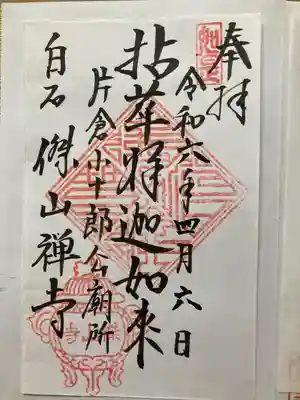 奉拝
令和六年四月六日
拈華釈迦如来
片倉小十郎公廟所
白石 傑山禅寺